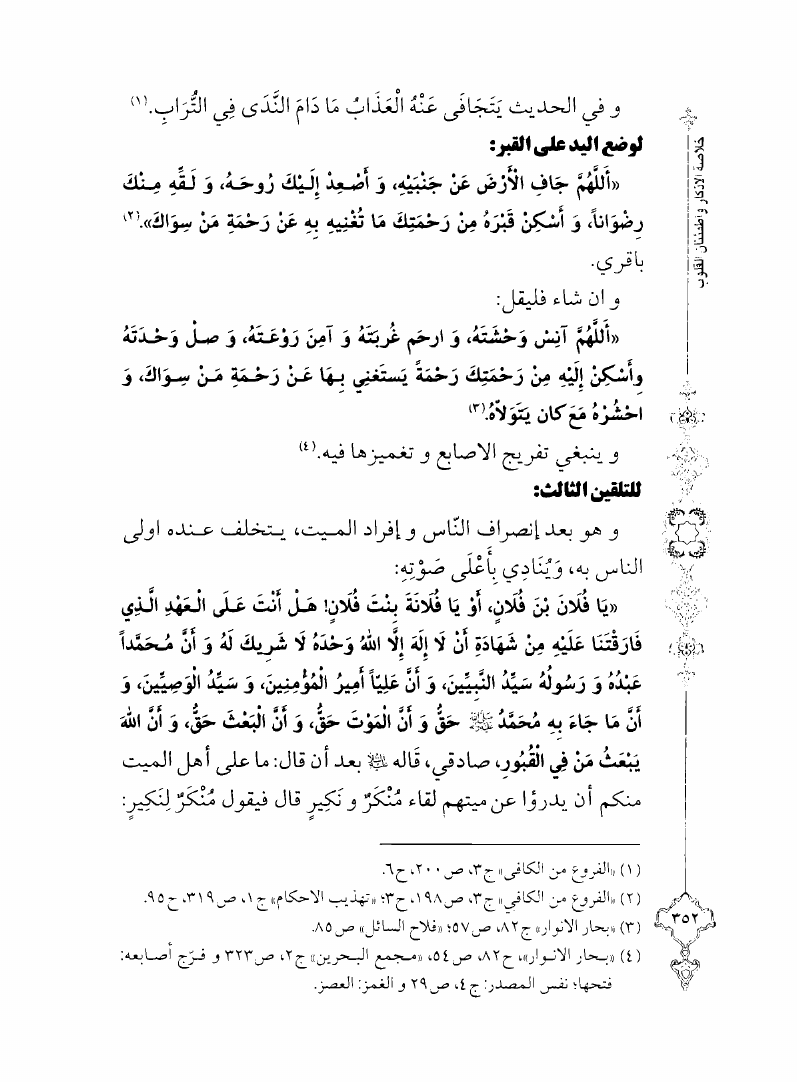 و في الحديث يَتَجَافَى عَنْهُ الْعَذَابُ مَا دَامَ النَّدَى فِي التُّرَابِ.(١)
لوضع اليد على القبر:
«أَللَّهُمَّ جَافِ الْأَرْضَ عَنْ جَنْبَيْهِ، وَ أَصْعِدْ إِلَيْكَ رُوحَهُ، وَ لَقِّهِ مِنْكَ
رِضْوَاناً، وَ أَسْكِنْ قَبْرَهُ مِنْ رَحْمَتِكَ مَا تُغْنِيهِ بِهِ عَنْ رَحْمَةِ مَنْ سِوَاكَ».(٢)
باقري.
و ان شاء فليقل:
«أَللَّهُمَّ آنِسْ وَحْشَتَهُ، وَ ارحَم غُربَتَهُ وَ آمِنَ رَوْعَتَهُ، وَ صلْ وَحْدَتَهُ
وأَسْكِنْ إِلَيْهِ مِنْ رَحْمَتِكَ رَحْمَةً يَستَغنِي بِهَا عَنْ رَحْمَةِ مَنْ سِوَاكَ، وَ
احْشُرْهُ مَعَ كان يَتَوَلاّهُ.(٣)
و ينبغي تفريج الاصابع و تغميزها فيه.(٤)
للتلقين الثالث:
و هو بعد إنصراف النّاس و إفراد الميت، يتخلف عنده اولى
الناس به، وَيُنَادِي بِأَعْلَى صَوْتِهِ:
«يَا فُلَانَ بْنَ فُلَانٍ، أَوْ يَا فُلَانَةَ بِنْتَ فُلَانٍ! هَلْ أَنْتَ عَلَى الْعَهْدِ الَّذِي
فَارَقْتَنَا عَلَيْهِ مِنْ شَهَادَةِ أَنْ لَا إِلَهَ إِلَّا اللهُ وَحْدَهُ لَا شَرِيكَ لَهُ وَ أَنَّ مُحَمَّداً
عَبْدُهُ وَ رَسُولُهُ سَيِّدُ النَّبِيِّينَ، وَ أَنَّ عَلِيّاً أَمِيرُ الْمُؤْمِنِينَ، وَ سَيِّدُ الْوَصِيِّينَ، وَ
أَنَّ مَا جَاءَ بِهِ مُحَمَّدٌ ﷺ حَقٌّ وَ أَنَّ الْمَوْتَ حَقٌّ، وَ أَنَّ الْبَعْثَ حَقٌّ، وَ أَنَّ اللهَ
يَبْعَثُ مَنْ فِي الْقُبُورِ، صادقي، قَاله بعد أن قال: ما على أهل الميت
منكم أن يدرؤا عن ميتهم لقاء مُنْكَرٌ و نَكِيرٍ قال فيقول مُنْكَرٌ لِنَكِيرٍ:
(١) «الفروع من الكافى» ج٣، ص٢٠٠، ح٦.
(٢) «الفروع من الكافي» ج٣، ص١٩٨، ح٣؛ «تهذيب الاحكام» ج١، ص٣١٩، ح٩٥.
(٣) «بحار الانوار» ج٨٢، ص٥٧؛ «فلاح السائل» ص٨٥.
(٤) «بحار الانوار»، ح٨٢، ص٥٤، «مجمع البحرين» ج٢، ص٣٢٣ و فرّج أصابعه:
فتحها؛ نفس المصدر: ج٤، ص٢٩ و الغمز: العصز.
خلاصة الاذكار و اطمئنان القلوب
٣٥٢